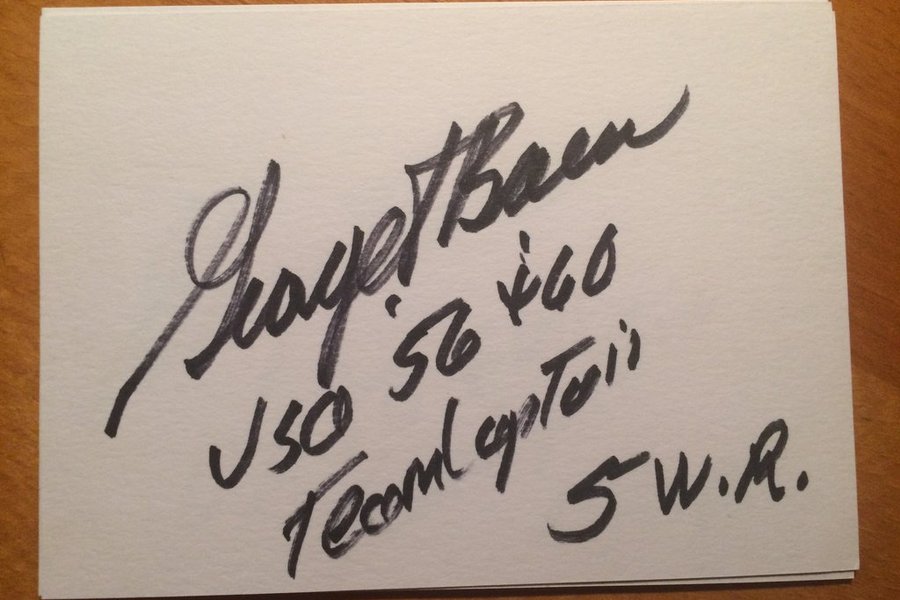 George T Breen
USO '56 & 60
Team Captain
5 W.R.